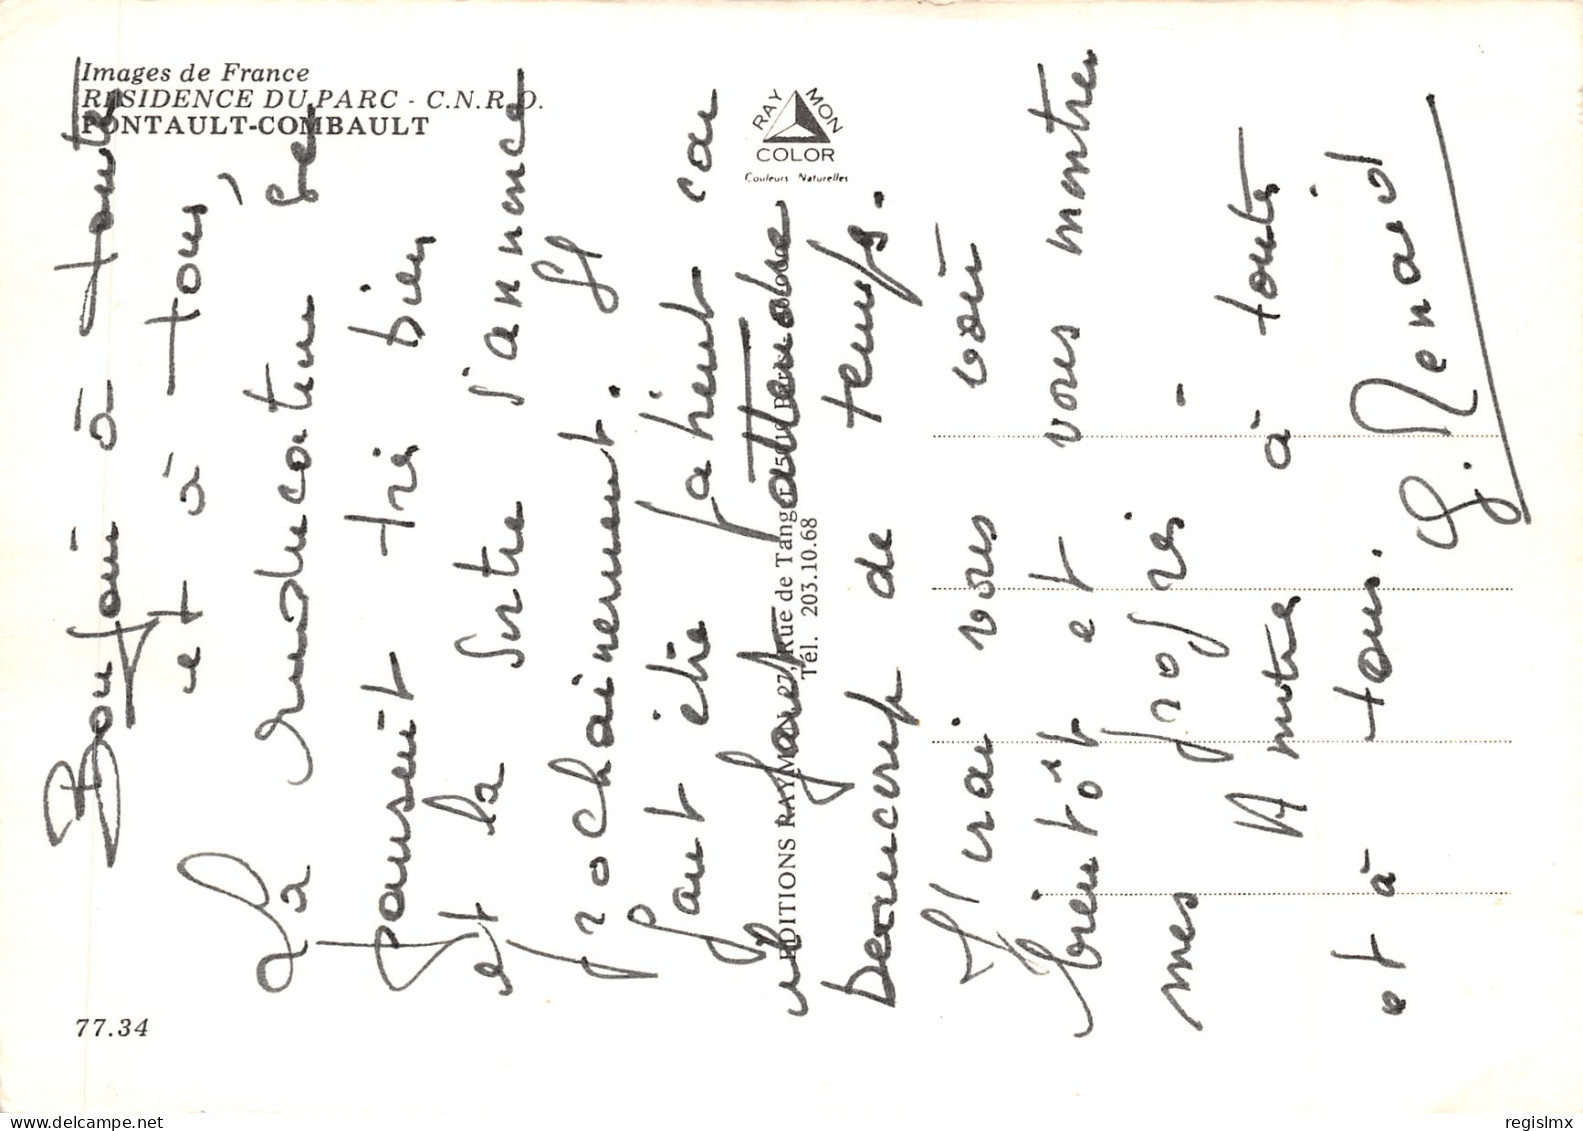 Images de France
RESIDENCE DU PARC - C.N.R.O.
PONTAULT-COMBAULT
RAYMON
COLOR
Couleurs Naturelles
EDITIONS RAYMON, 27, Rue de Tanger
Tél. 203.10.68
77.34
Bonjour à toute
et à tous,
La rééducation se
poursuit très bien
et la sortie s'annonce
prochainement. Il
faut être patient car
il faut attendre
beaucoup de temps.
J'irai vous voir
bientôt et vous montrer
mes progrès -
A notre à toute
et à tous.
G. Renard
regislmx